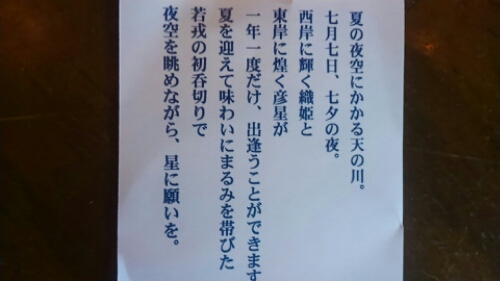 夏の夜空にかかる天の川。
七月七日、七夕の夜。
西岸に輝く織姫と
東岸に煌く彦星が
一年一度だけ、出逢うことができます
夏を迎えて味わいにまるみを帯びた
若戎の初呑切りで
夜空を眺めながら、星に願いを。